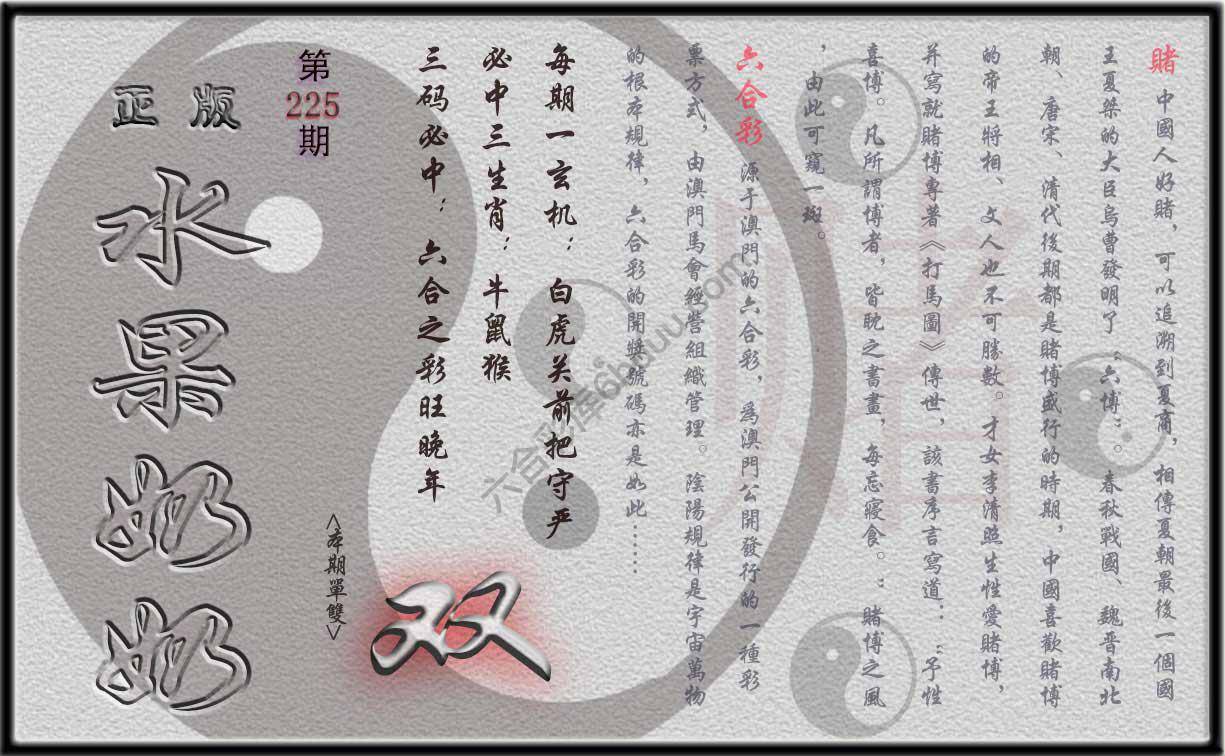 賭 中國人好賭，可以追溯到夏商，相傳夏朝最後一個國
王夏桀的大臣烏曹發明了“六博”。春秋戰國、魏晋南北
朝、唐宋、清代後期都是賭博盛行的時期，中國喜歡賭博
的帝王將相、文人也不可勝數。才女李清照生性愛賭博，
并寫就賭博專著《打馬圖》傳世，該書序言寫道：“予性
喜博。凡所謂博者，皆眈之書畫，每忘寢食。”賭博之風
，由此可窺一斑。
六合彩 源于澳門的六合彩，爲澳門公開發行的一種彩
票方式，由澳門馬會經營組織管理。陰陽規律是宇宙萬物
的根本規律，六合彩的開獎號碼亦是如此……
每期一玄机：白虎关前把守严
必中三生肖：牛鼠猴
三码必中：六合之彩旺晚年
第
225
期
<本期單雙>
双
正版
水果奶奶
賭
六合彩库6hduu.com